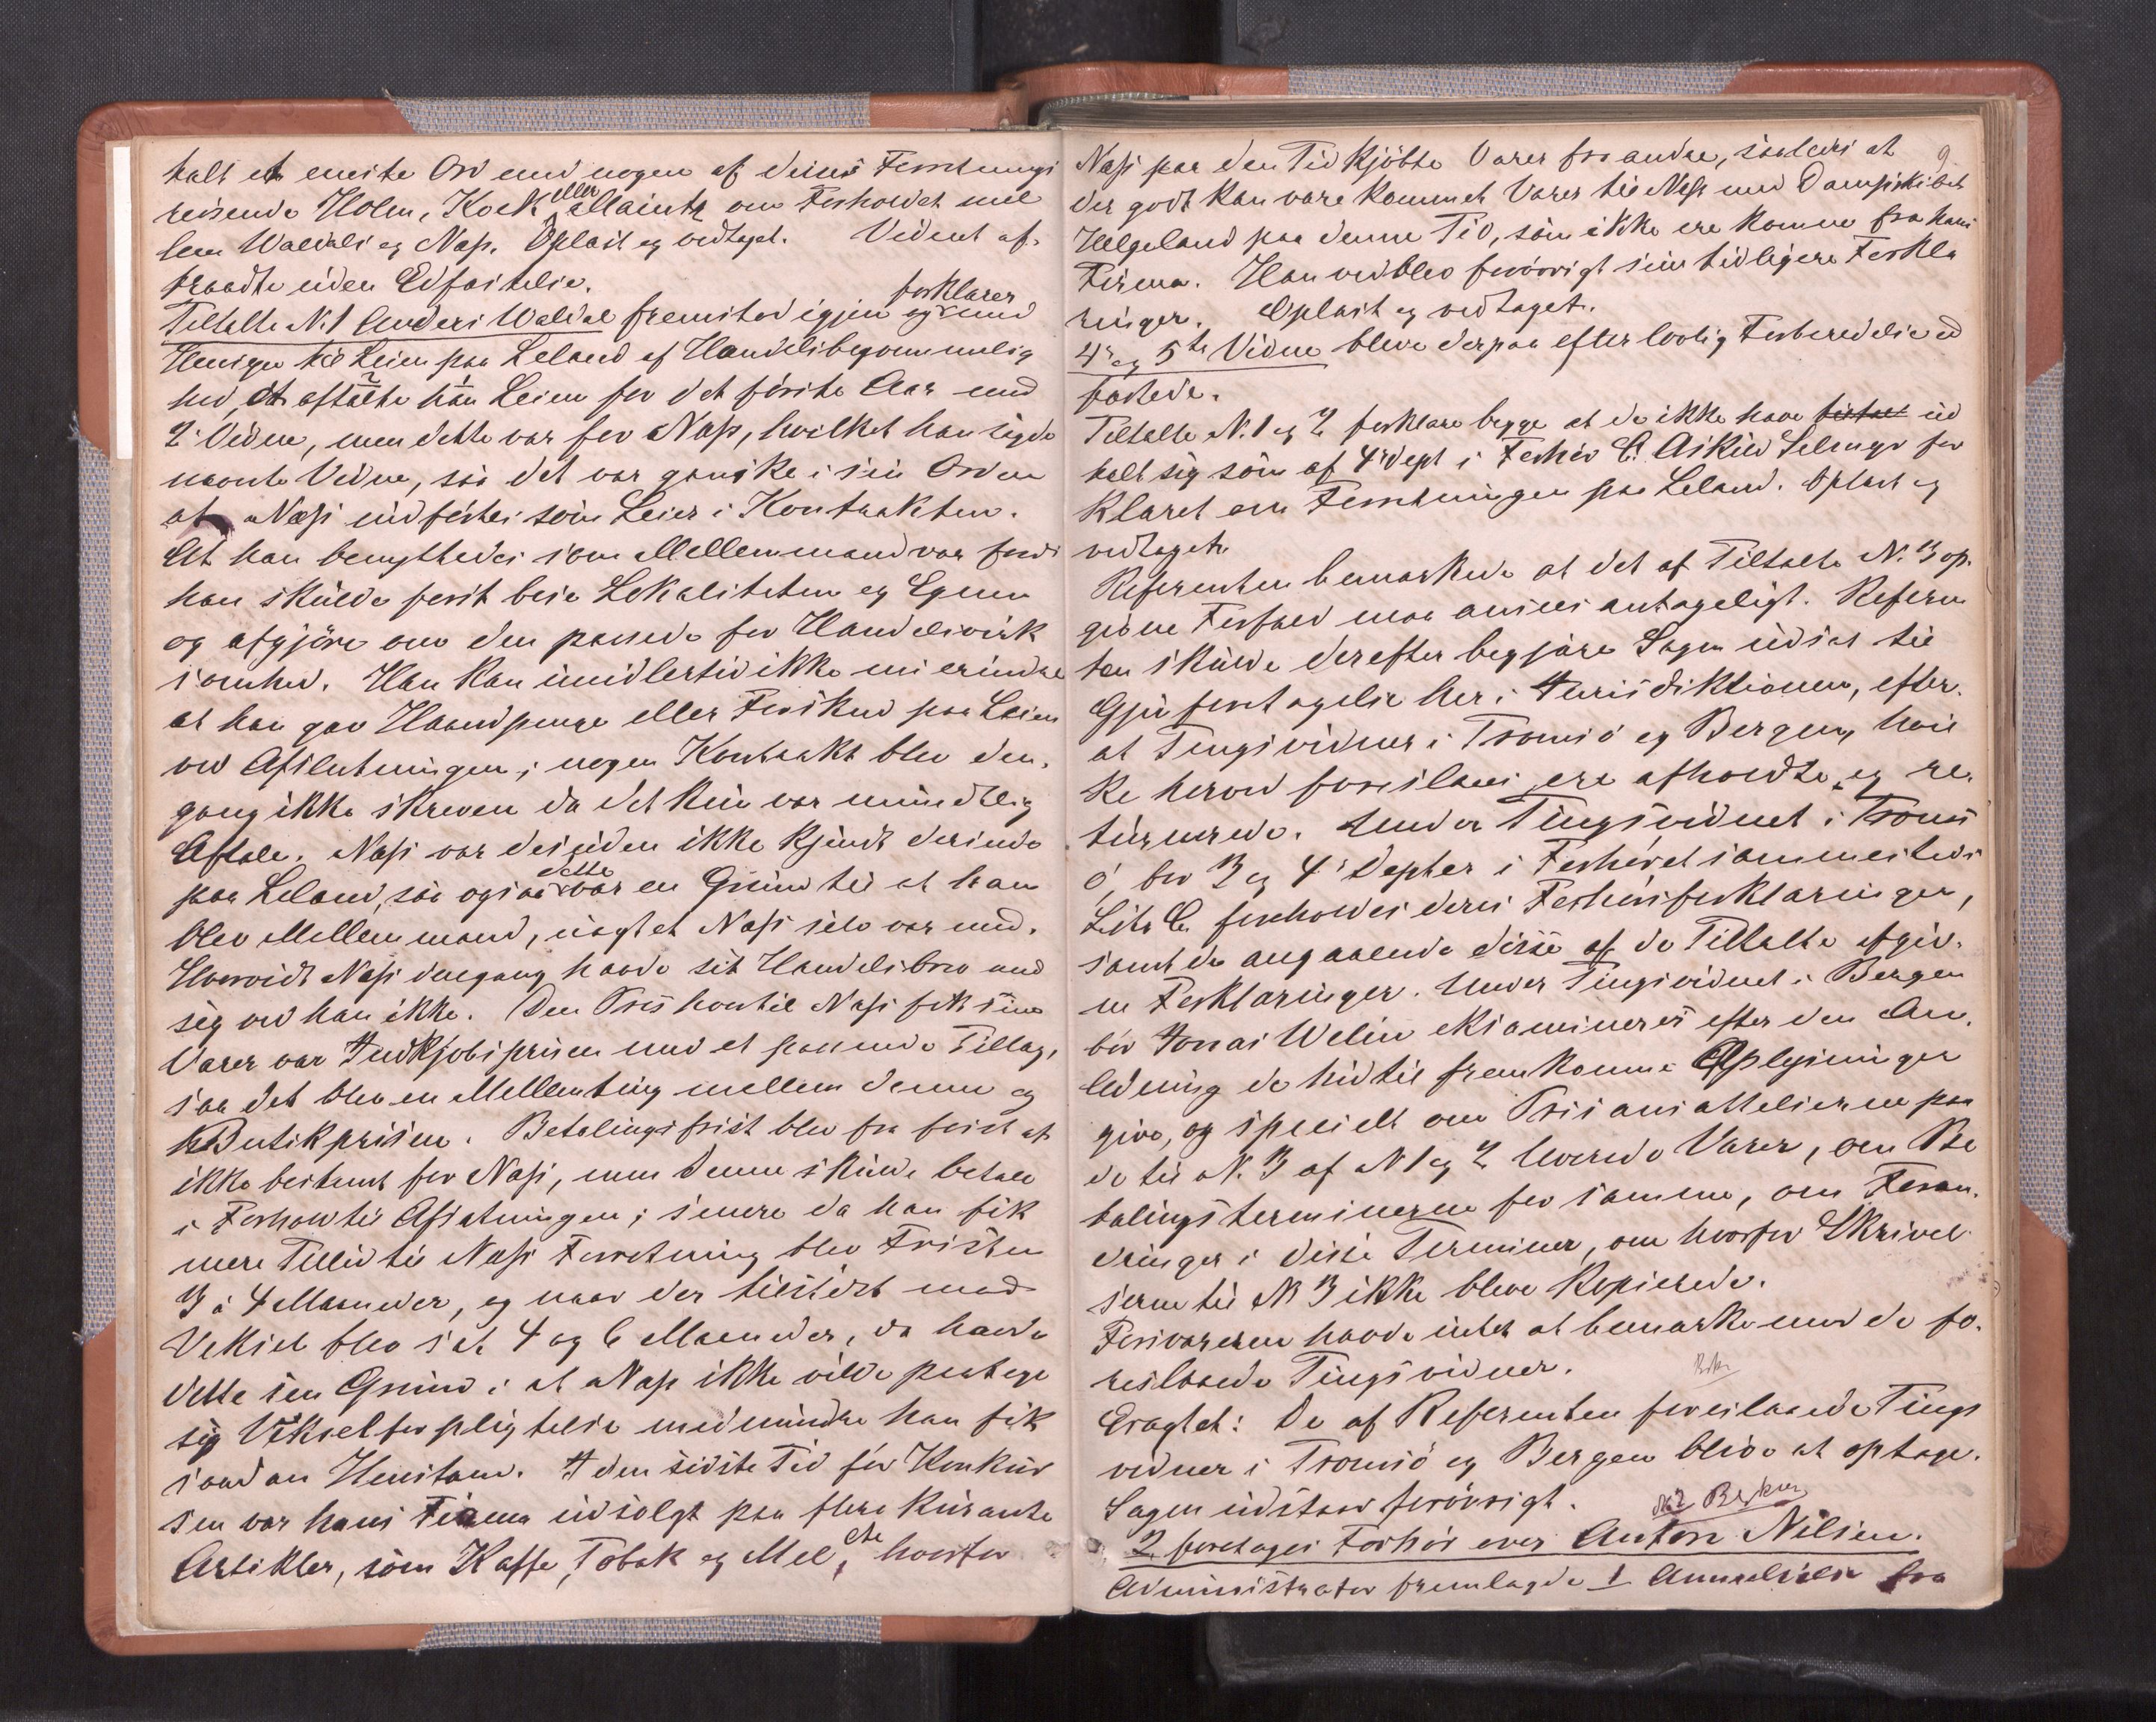 talt et eneste Ord med nogen af disses Forretnings
reisende Holm, Koek eller Maintz om Forholdet mel
lem Waldals og Næss. Oplæst og vedtaget. Vidnet af-
traadte uden Edfæstelse.
Tiltalte N. 1 Anders Waldal fremstod igjen og forklarer med
Hensyn til Leien paa Leland af Handelsbeqvemmelig
hed, at aftalte han Leien for det første Aar med
2 Vidne, men dette var for Næss, hvilket han sagde
nævnte Vidne, saa det var ganske i sin Orden
at Næss indførtes som Leier i Kontrakten.
At han benyttedes som Mellemmand var fordi
han skulde først bese Lokaliteten og Egnen
og afgjøre om den passede for Handelsvirk
somhed. Han kan imidlertid ikke mi erindre
at han gav Haandpenge eller Forskud paa Leien
ved Afslutningen; nogen Kontrakt blev den-
gang ikke skreven da det kun var mundtlig
Aftale. Næss var desuden ikke kjendt derinde
paa Leland, saa ogsaa dette var en Grund til at han
blev Mellemmand, uagtet Næss selv var med.
Hvorvidt Næss dengang havde sit Handelsbrev med
sig ved han ikke. Den Pris hvortil Næss fik sine
Varer var Indkjøbsprisen med et passende Tillæg,
saa det blev en Mellemting mellem denne og
Butikprisen. Betalingsfrist blev fra først af
ikke bestemt for Næss, men denne skulde betale
i Forhold til Afsætningen; senere da han fik
mere Tillid til Næss Forretning blev Fristen
3 à 4 Maaneder, og naar der tilsidst med
Veksel blev sat 4 og 6 Maaneder, da havde
dette sin Grund i at Næss ikke vilde paatage
sig Vekselforpligtelse medmindre han fik
saadan Henstand. I den sidste Tid før Konkur
sen var hans Firma udsolgt paa flere kurante
Artikler, som Kaffe, Tobak og Mel, etc hvorfor
9.
Næss paa den Tid kjöbte Varer fra andre, saaledes at
der godt kan være kommet Varer til Næss med Dampskibet
Helgeland paa denne Tid, som ikke ere komne fra hans
Firma. Han vedblev forövrigt sine tidligere Forkla
ringer. Oplæst og vedtaget.
4de og 5te Vidne bleve derpaa efter lovlig Forberedelse ed
fæstede.
Tiltalte N. 1 og 2 forklare begge at de ikke have ud
talt sig som af 4de Dept i Forhör C. Askild Selmys for
klaret om Forretningen paa Leland. Oplæst og
vedtaget.
Referenten bemærkede at det af Tiltalte N. 3 op-
givne Forfald maa ansees antageligt. Referen
ten skulde derefter begjære Sagen udsat til
Gjenforetagelse her i Jurisdiktionen, efter-
at Tingsvidner i Tromsö og Bergen, hvil
ke herved foreslaaes, ere afholdte og re-
turnerede. Under Tingsvidnet i Troms
ö, bör 3 og 4de Depter i Forhöret sammesteds
Litr C. foreholdes deres Forhörsforklaringer,
samt de angaaende disse af de Tiltalte afgiv-
ne Forklaringer. Under Tingsvidnet i Bergen
bör Jonas Welin eksamineres efter den An-
ledning de hidtil fremkomne Oplysninger
give, og specielt om Prisansættelserne paa
de til N. 3 af N 1 og 2 leverede Varer, om Be
talingsterminerne for samme, om Foran-
dringer i disse Terminer, om hvorfor Skrivel
serne til N 3 ikke bleve kopierede.
Forsvareren havde intet at bemærke mod de fo-
reslaaede Tingsvidner.
Eragtet: De af Referenten foreslaaede Tings
vidner i Tromsö og Bergen blive at optage.
Sagen udstaar forövrigt.
2. foretages Forhör over Anton Nilsen.
Administrator fremlagde 1 Anmeldelse fra